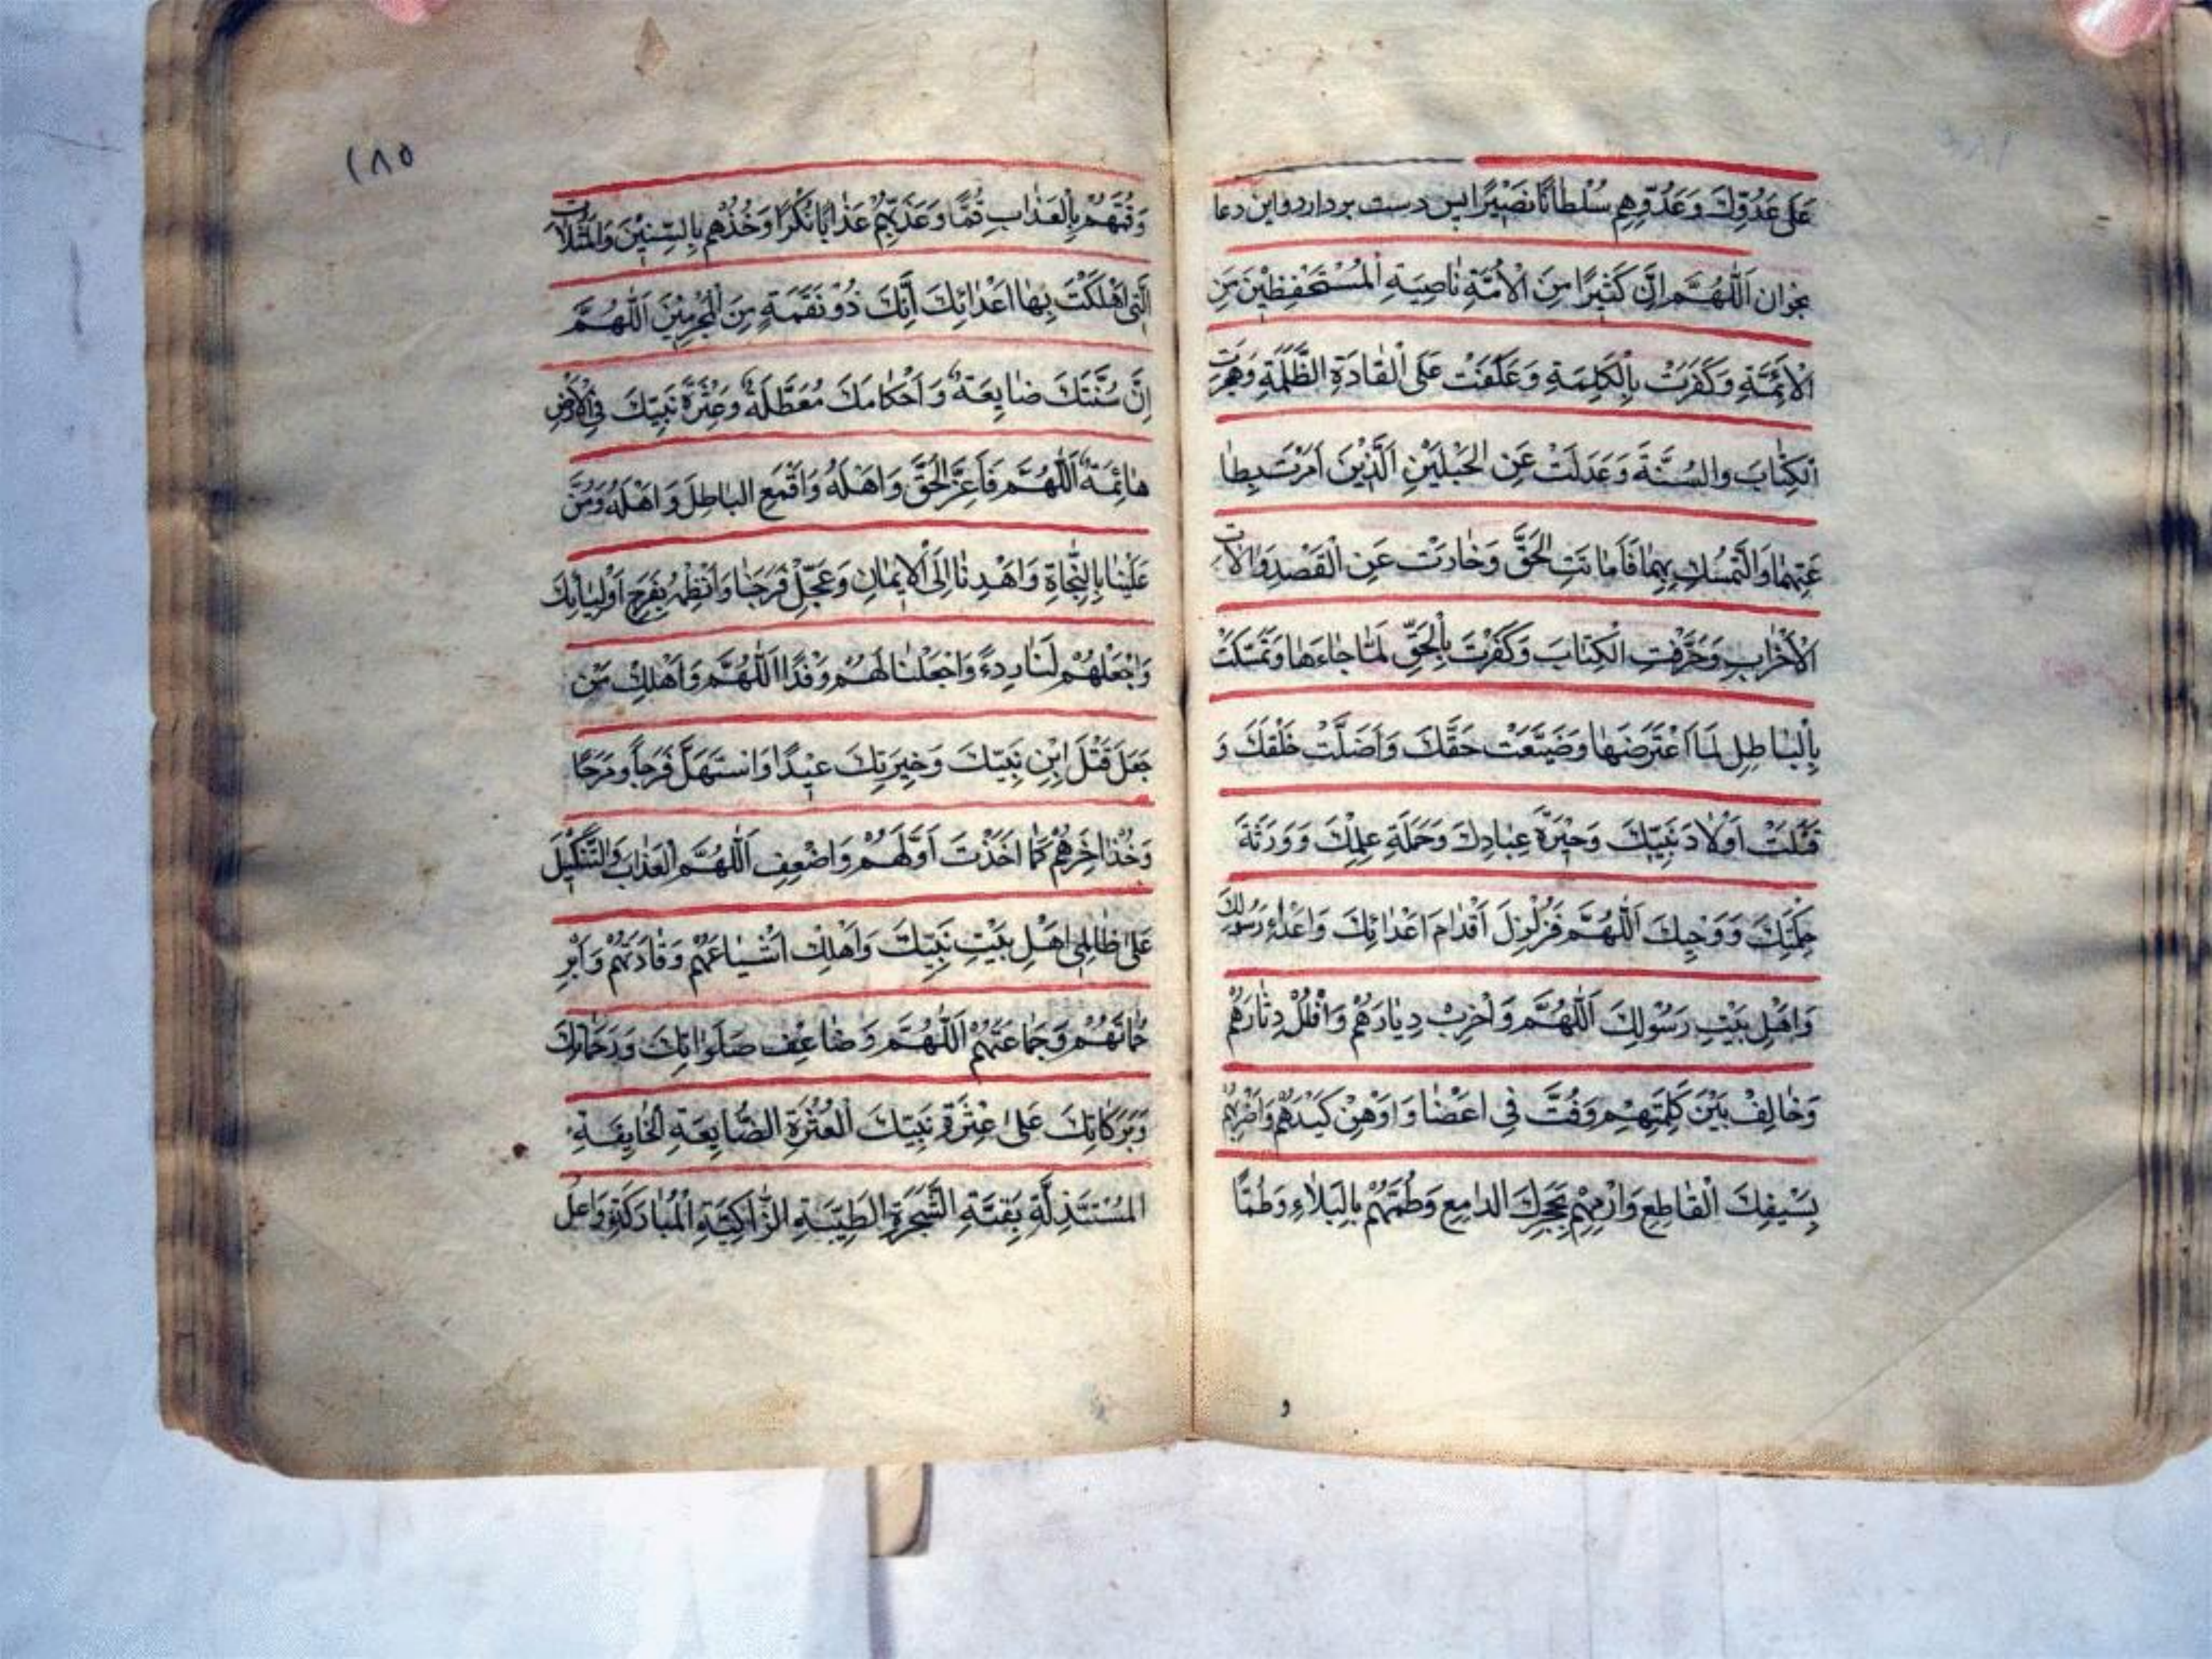 عَلٰی عَدُوِّكَ وَعَدُوِّهِمْ سُلْطَانًا نَصِيْرًا پس دست بردارد واین دعا
بخوان اَللّٰهُمَّ اِنَّ كَثِيْرًا مِنَ الْاُمَّةِ نَاصِيَةِ الْمُسْتَحْفِظِيْنَ مِنَ
الْاَئِمَّةِ وَكَفَرَتْ بِالْكَلِمَةِ وَعَكَفَتْ عَلَى الْقَادَةِ الظَّلَمَةِ وَهَجَرَتِ
الْكِتَابَ وَالسُّنَّةَ وَعَدَلَتْ عَنِ الْحَبْلَيْنِ الَّذِيْنَ اَمَرْتَ بِطَا
عَتِهِمَا وَالتَّمَسُّكِ بِهِمَا فَاَمَاتَتِ الْحَقَّ وَحَادَتْ عَنِ الْقَصْدِ وَالاَتِ
الْاَحْزَابِ وَحَرَّفَتِ الْكِتَابَ وَكَفَرَتْ بِالْحَقِّ لَمَّا جَاءَهَا وَتَمَسَّكَتْ
بِالْبَاطِلِ لَمَّا اعْتَرَضَهَا وَضَيَّعَتْ حَقَّكَ وَاَضَلَّتْ خَلْقَكَ وَ
قَتَلَتْ اَوْلَادَ نَبِيِّكَ وَخِيَرَةَ عِبَادِكَ وَحَمَلَةَ عِلْمِكَ وَوَرَثَةَ
حِكْمَتِكَ وَوَحْيِكَ اَللّٰهُمَّ فَزَلْزِلْ اَقْدَامَ اَعْدَائِكَ وَاَعْدَاءِ رَسُوْلِكَ
وَاَهْلِ بَيْتِ رَسُوْلِكَ اَللّٰهُمَّ وَاَخْرِبْ دِيَارَهُمْ وَافْلُلْ دِثَارَهُمْ
وَخَالِفْ بَيْنَ كَلِمَتِهِمْ وَفُتَّ فِي اَعْضَا وَاَوْهِنْ كَيْدَهُمْ وَاضْرِبْهُمْ
بِسَيْفِكَ الْقَاطِعِ وَارْمِهِمْ بِحَجَرِكَ الدامِغِ وَطُمَّهُمْ بِالْبَلَاءِ وَطَمًّا
و
١٨٥
وَقُمَّهُمْ بِالْعَذَابِ قُمًّا وَعَذِّبْهُمْ عَذَابًا نُكْرًا وَخُذْهُمْ بِالسِّنِيْنَ وَالْمَثُلَاتِ
الَّتِي اَهْلَكْتَ بِهَا اَعْدَائِكَ اِنَّكَ ذُوْ نَقْمَةٍ مِنَ الْمُجْرِمِيْنَ اَللّٰهُمَّ
اِنَّ سُنَّتَكَ ضَايِعَةٌ وَاَحْكَامَكَ مُعَطَّلَةٌ وَعِتْرَةَ نَبِيِّكَ فِي الْاَرْضِ
هَائِمَةٌ اَللّٰهُمَّ فَاَعِزَّ الْحَقَّ وَاَهْلَهُ وَاقْمَعِ البَاطِلَ وَاَهْلَهُ وَمُنَّ
عَلَيْنَا بِالنَّجَاةِ وَاهْدِنَا اِلَى الْاِيْمَانِ وَعَجِّلْ فَرَجَنَا وَانْظِمْهُ بِفَرَجِ اَوْلِيَائِكَ
وَاجْعَلْهُمْ لَنَا رِدءً وَاجْعَلْنَا لَهُمْ وَفْدًا اَللّٰهُمَّ وَاَهْلِكْ مَنْ
جَعَلَ قَتْلَ ابْنِ نَبِيِّكَ وَخِيَرَتِكَ عِيْدًا وَاسْتَهَلَّ فَرَجاً وَمَرَحًا
وَخُذْ اٰخِرَهُمْ كَمَا اَخَذْتَ اَوَّلَهُمْ وَاضْعِفِ اَللّٰهُمَّ الْعَذَابَ وَالتَّنْكِيْلَ
عَلٰى ظَالِمِي اَهْلِ بَيْتِ نَبِيِّكَ وَاَهْلِكْ اَشْيَاعَهُمْ وَقَادَتَهُمْ وَاَبِرْ
حُمَاتَهُمْ وَجَمَاعَتَهُمْ اَللّٰهُمَّ وَضَاعِفْ صَلَوَاتِكَ وَرَحْمَتِكَ
وَبَرَكَاتِكَ عَلٰى عِتْرَةِ نَبِيِّكَ الْعِتْرَةِ الضَّايِعَةِ الْخَايِفَةِ
المُسْتَذِلَّةِ بَقِيَّةِ الشَّجَرَةِ الطَّيِّبَةِ الزَّاكِيَةِ الْمُبَارَكَةِ وَاَعْلِ